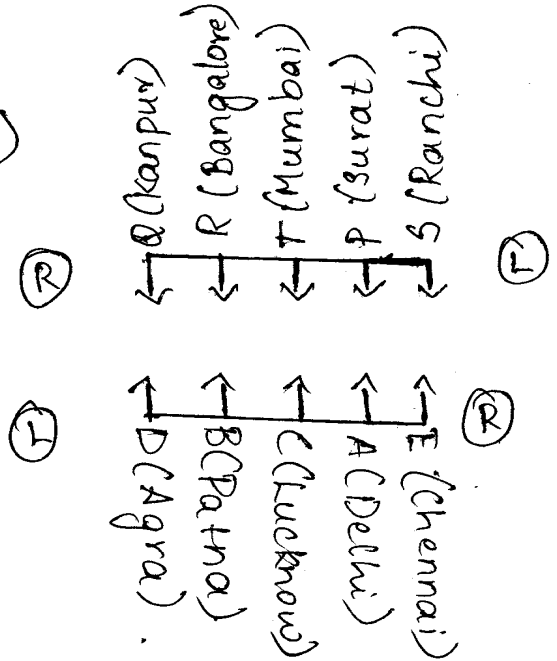 Q (Kanpur)
R (Bangalore)
T (Mumbai)
P (Surat)
S (Ranchi)
R
L
L
R
D (Agra).
B (Patna)
C (Lucknow)
A (Delhi)
E (Chennai)